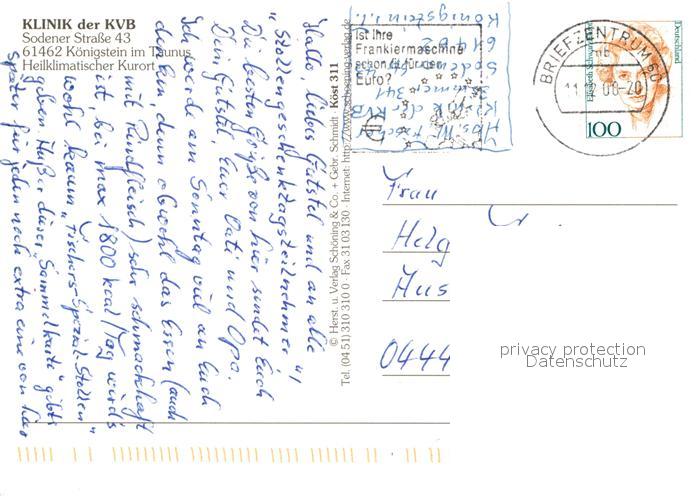 KLINIK der KVB
Sodener Straße 43
61462 Königstein im Taunus
Heilklimatischer Kurort
Hallo liebes Gutstel und an alle
"Stollengeschenktagsteilnehmer",
Die besten Grüße von hier sendet Euch
Dein Gutstel, Euer Vati und Opa.
Ich werde am Sonntag viel an Euch
denken, denn obwohl das Essen (auch
mit Rindfleisch) sehr schmackhaft
ist, bei max 1800 kcal/Tag wird's
wohl kaum "Fischers-Spezial-Stollen"
geben. Außer dieser "Sammelkarte" gibt's
später für jeden noch extra eine von hier
© Herst. u. Verlag Schöning & Co. + Gebr. Schmidt · Köst 311
Tel. (04 51) 310 310 0 · Fax 31 03 130 · Internet: http://www.schoening-verlag.de
Klinik d. KVB
Zimmer 341
Sodener Str. 43
61462
Königstein i. T.
Ist Ihre
Frankiermaschine
schon fit für den
Euro?
BRIEFZENTRUM 60
-20
Deutschland
Elisabeth Schwarzhaupt
100
Frau
Helg
Hus
0444
privacy protection
Datenschutz